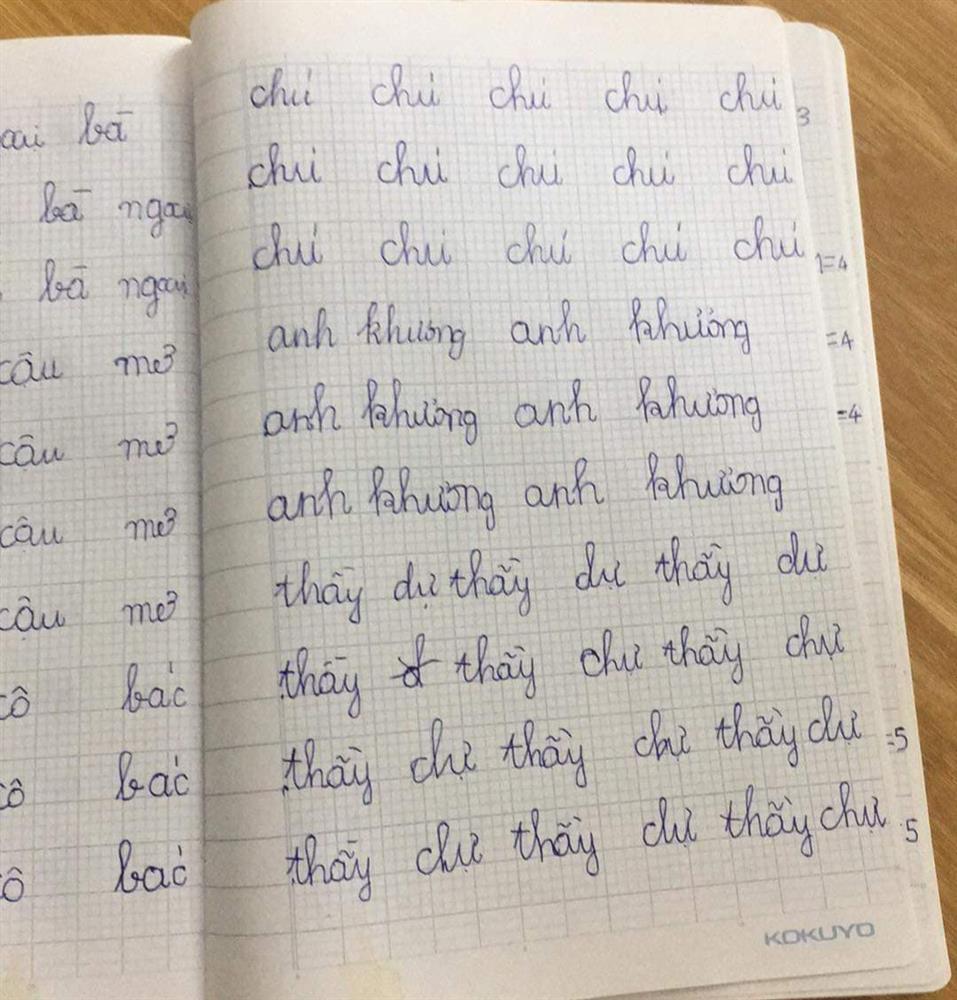 bà
bà ngoại
bà ngoại
cậu mở
cậu mở
cậu mở
cậu mở
cô bác
cô bác
cô bác
chú chú chú chú chú 3
chú chú chú chú chú
chú chú chú chú chú 1=4
anh khương anh khương =4
anh khương anh khương =4
anh khương anh khương
thầy dự thầy dự thầy dự
thầy thầy chự thầy chự
thầy chự thầy chự thầy chự =5
thầy chự thầy dự thầy chự 5
KOKUYO